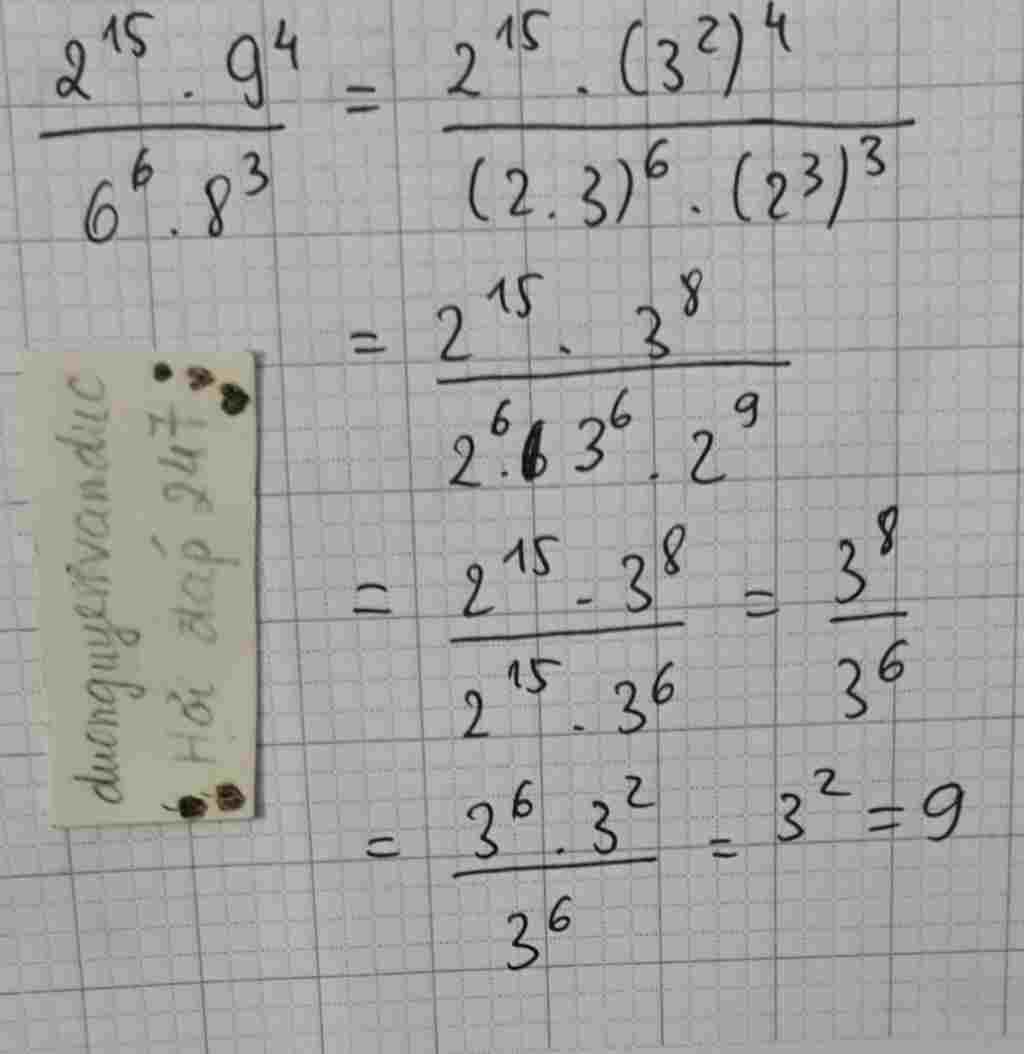 2¹⁵ . 9⁴ / 6⁶ . 8³ = 2¹⁵ . (3²)⁴ / (2 . 3)⁶ . (2³)³
= 2¹⁵ . 3⁸ / 2⁶ . 3⁶ . 2⁹
= 2¹⁵ . 3⁸ / 2¹⁵ . 3⁶ = 3⁸ / 3⁶
= 3⁶ . 3² / 3⁶ = 3² = 9
duonguyenvanduc
Hỏi đáp 247